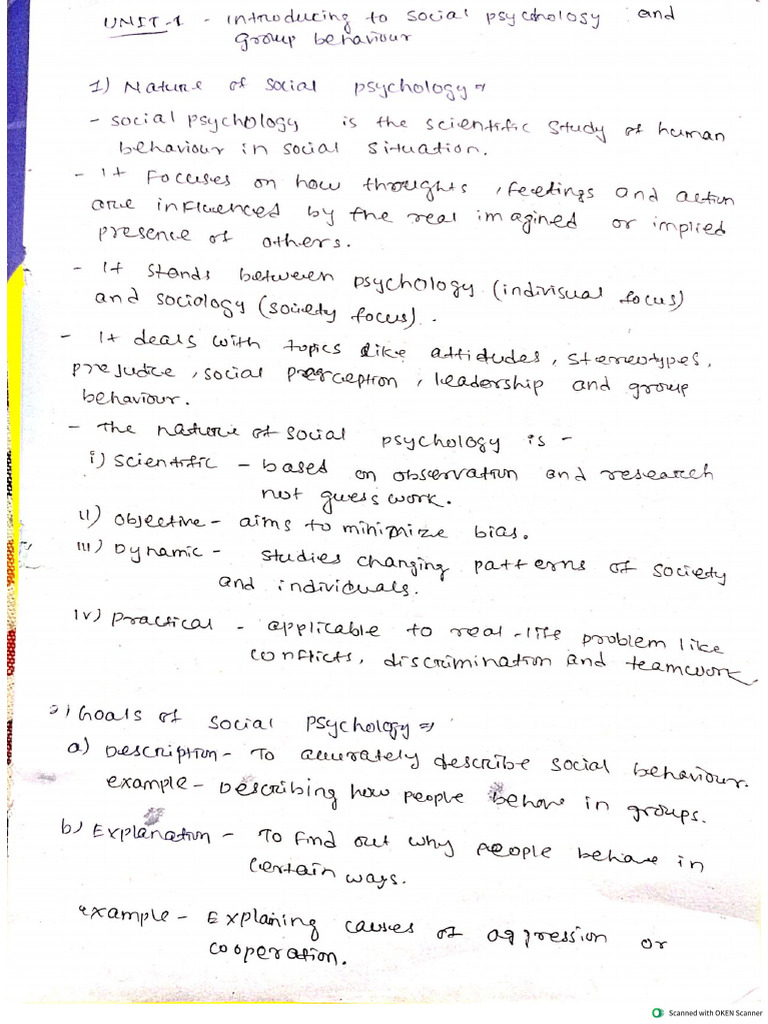 UNIT-1 - Introducing to social psychology and
group behaviour
1) Nature of social psychology ⇒
- social psychology is the scientific study of human
behaviour in social situation.
- It focuses on how thoughts, feelings and action
are influenced by the real imagined or implied
presence of others.
- It stands between psychology (indivisual focus)
and sociology (society focus).
- It deals with topics like attitudes, stereotypes,
prejudice, social perception, leadership and group
behaviour.
- The nature of social psychology is -
i) scientific - based on observation and research
not guess work.
ii) objective - aims to minimize bias.
iii) Dynamic - studies changing patterns of society
and individuals.
iv) practical - applicable to real-life problem like
conflicts, discrimination and teamwork.
2) Goals of social psychology ⇒
a) Description - To accurately describe social behaviour.
example - Describing how people behave in groups.
b) Explanation - To find out why people behave in
certain ways.
example - Explaning causes of aggression or
cooperation.
Scanned with OKEN Scanner